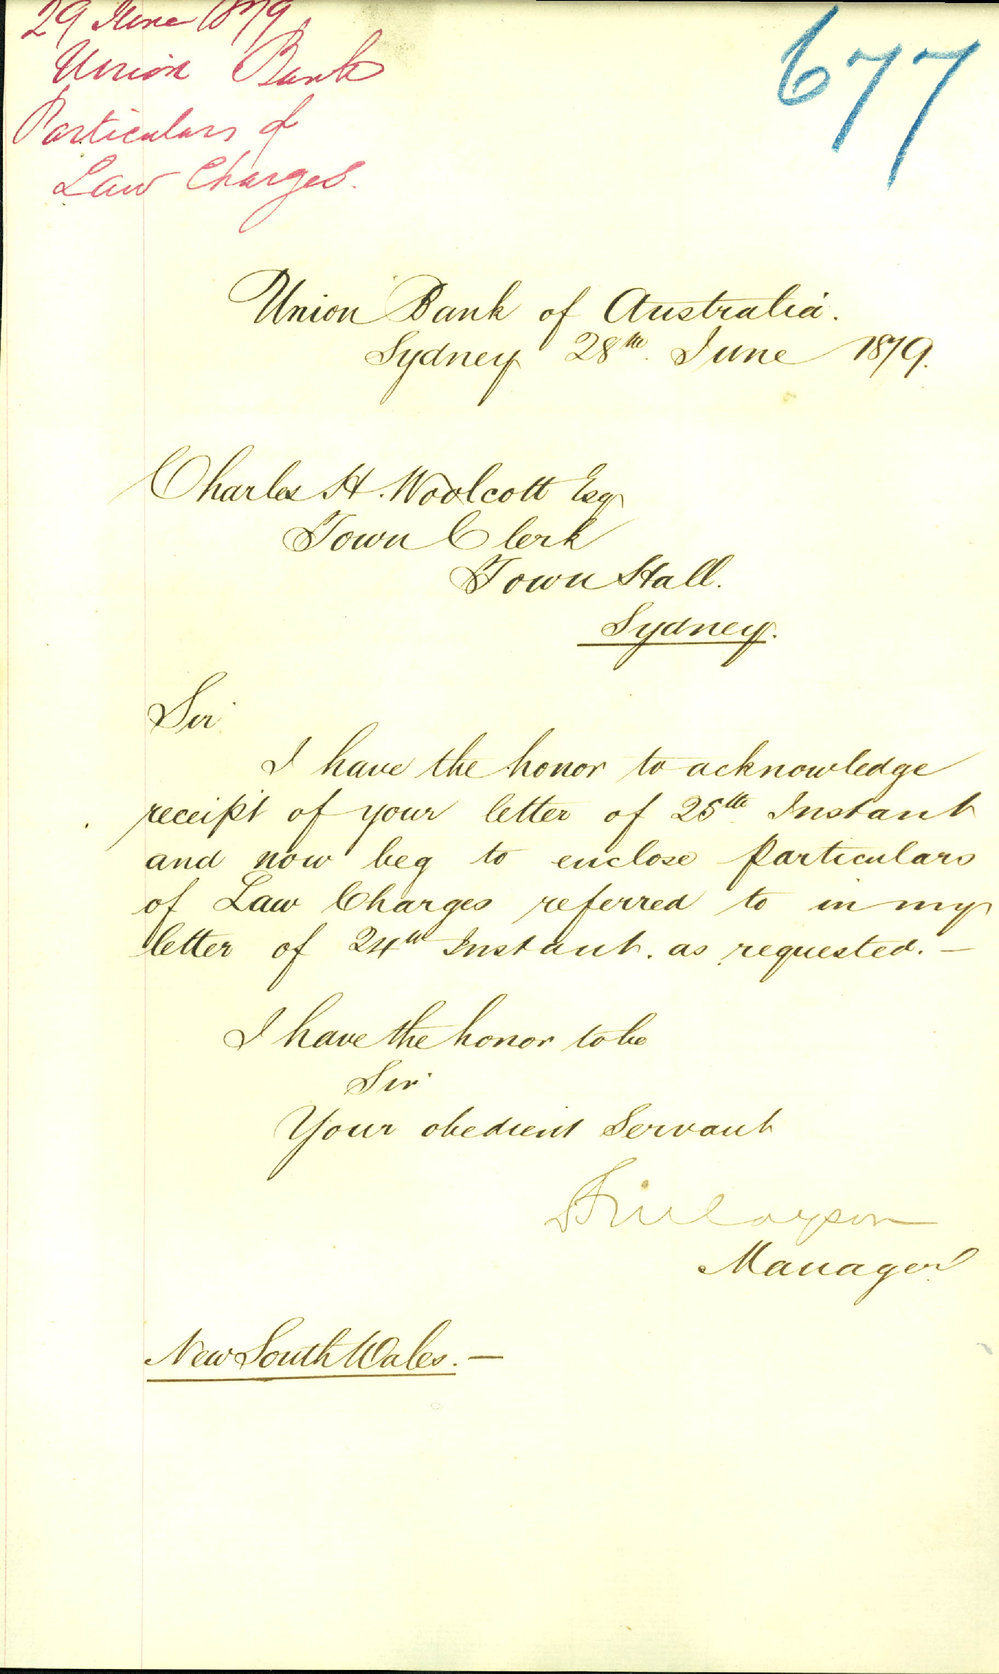 29 June 1879
Union Bank
Particulars of
Law Charges.
677
Union Bank of Australia.
Sydney 28th June 1879.
Charles H. Woolcott Esq
Town Clerk
Town Hall.
Sydney.
Sir
I have the honor to acknowledge
receipt of your letter of 25th Instant
and now beg to enclose particulars
of Law Charges referred to in my
letter of 24th Instant. as requested. —
I have the honor to be
Sir
Your obedient Servant
Finlayson
Manager
New South Wales. —